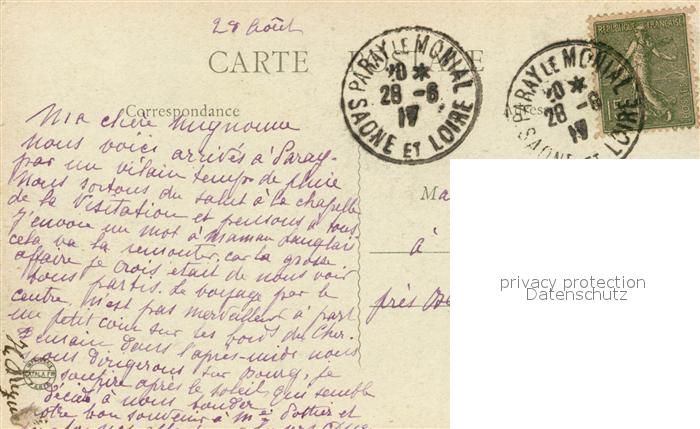 28 Août
CARTE POSTALE
PARAY LE MONIAL
20 *
28 -8
17
SAONE ET LOIRE
PARAY LE MONIAL
20 *
28 -8
17
SAONE ET LOIRE
REPUBLIQUE FRANÇAISE
15
Correspondance
Ma chère mignonne
nous voici arrivés à Paray-
par un vilain temps de pluie
Nous sortons du salut à la chapelle
de la Visitation et pensons à tous
J'envoie un mot à Maman Langlais
cela va la remonter, car la grosse
affaire je crois était de nous voir
tous partis. Le voyage par le
centre, n'est pas merveilleux à part
un petit coin sur les bords du Cher.
Demain dans l'après-midi nous
nous dirigerons sur Bourg, je
soupire après le soleil qui semble
décidé à nous bouder
notre bon souvenir à Me Pottier et
Ma
à
près
privacy protection
Datenschutz